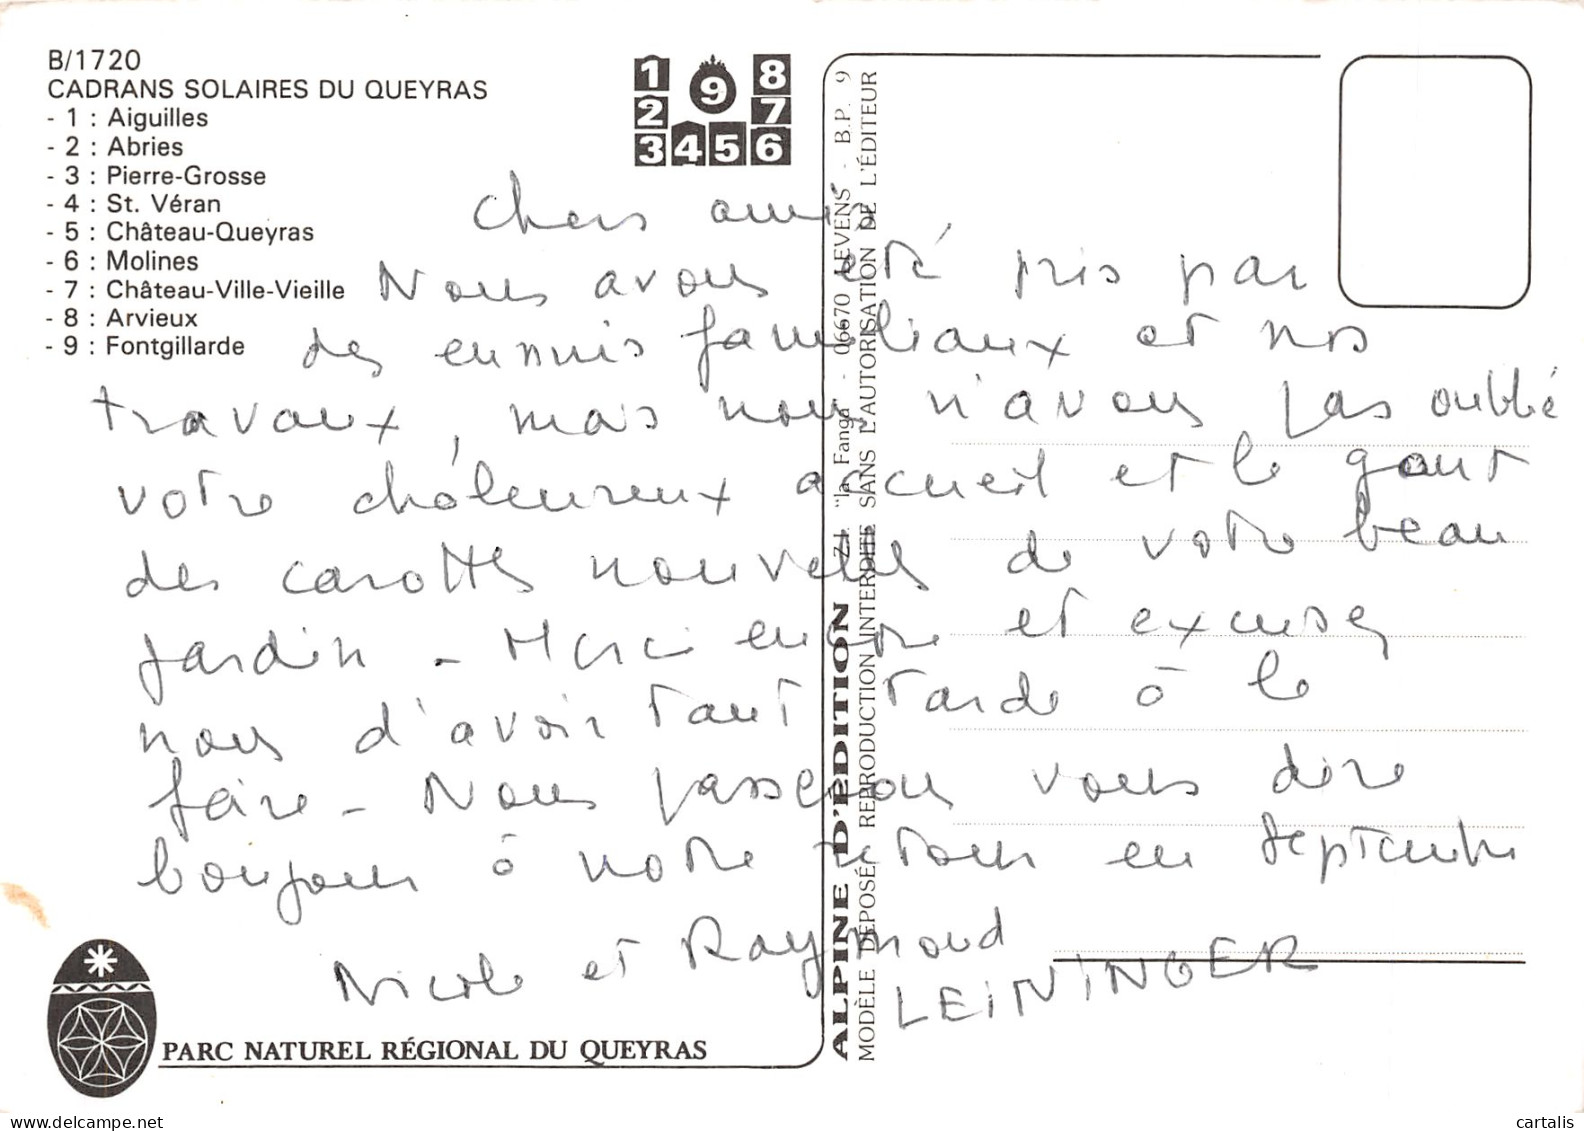 B/1720
CADRANS SOLAIRES DU QUEYRAS
- 1 : Aiguilles
- 2 : Abries
- 3 : Pierre-Grosse
- 4 : St. Véran
- 5 : Château-Queyras
- 6 : Molines
- 7 : Château-Ville-Vieille
- 8 : Arvieux
- 9 : Fontgillarde
1 9 8
2 7
3 4 5 6
Chers amis
Nous avons été pris par
des ennuis familiaux et nos
travaux, mais nous n'avons pas oublié
votre chaleureux accueil et le gout
des carottes nouvelles de votre beau
jardin - Merci encore et excusez
nous d'avoir tant tardé à le
faire - Nous passerons vous dire
bonjour à notre retour en septembre
Nicole et Raymond
LEININGER
PARC NATUREL RÉGIONAL DU QUEYRAS
ALPINE D'ÉDITION Z.I. "la Fanga" - 06670 LEVENS - B.P. 9
MODÈLE DÉPOSÉ, REPRODUCTION INTERDITE SANS L'AUTORISATION DE L'ÉDITEUR
delcampe.net
cartalis